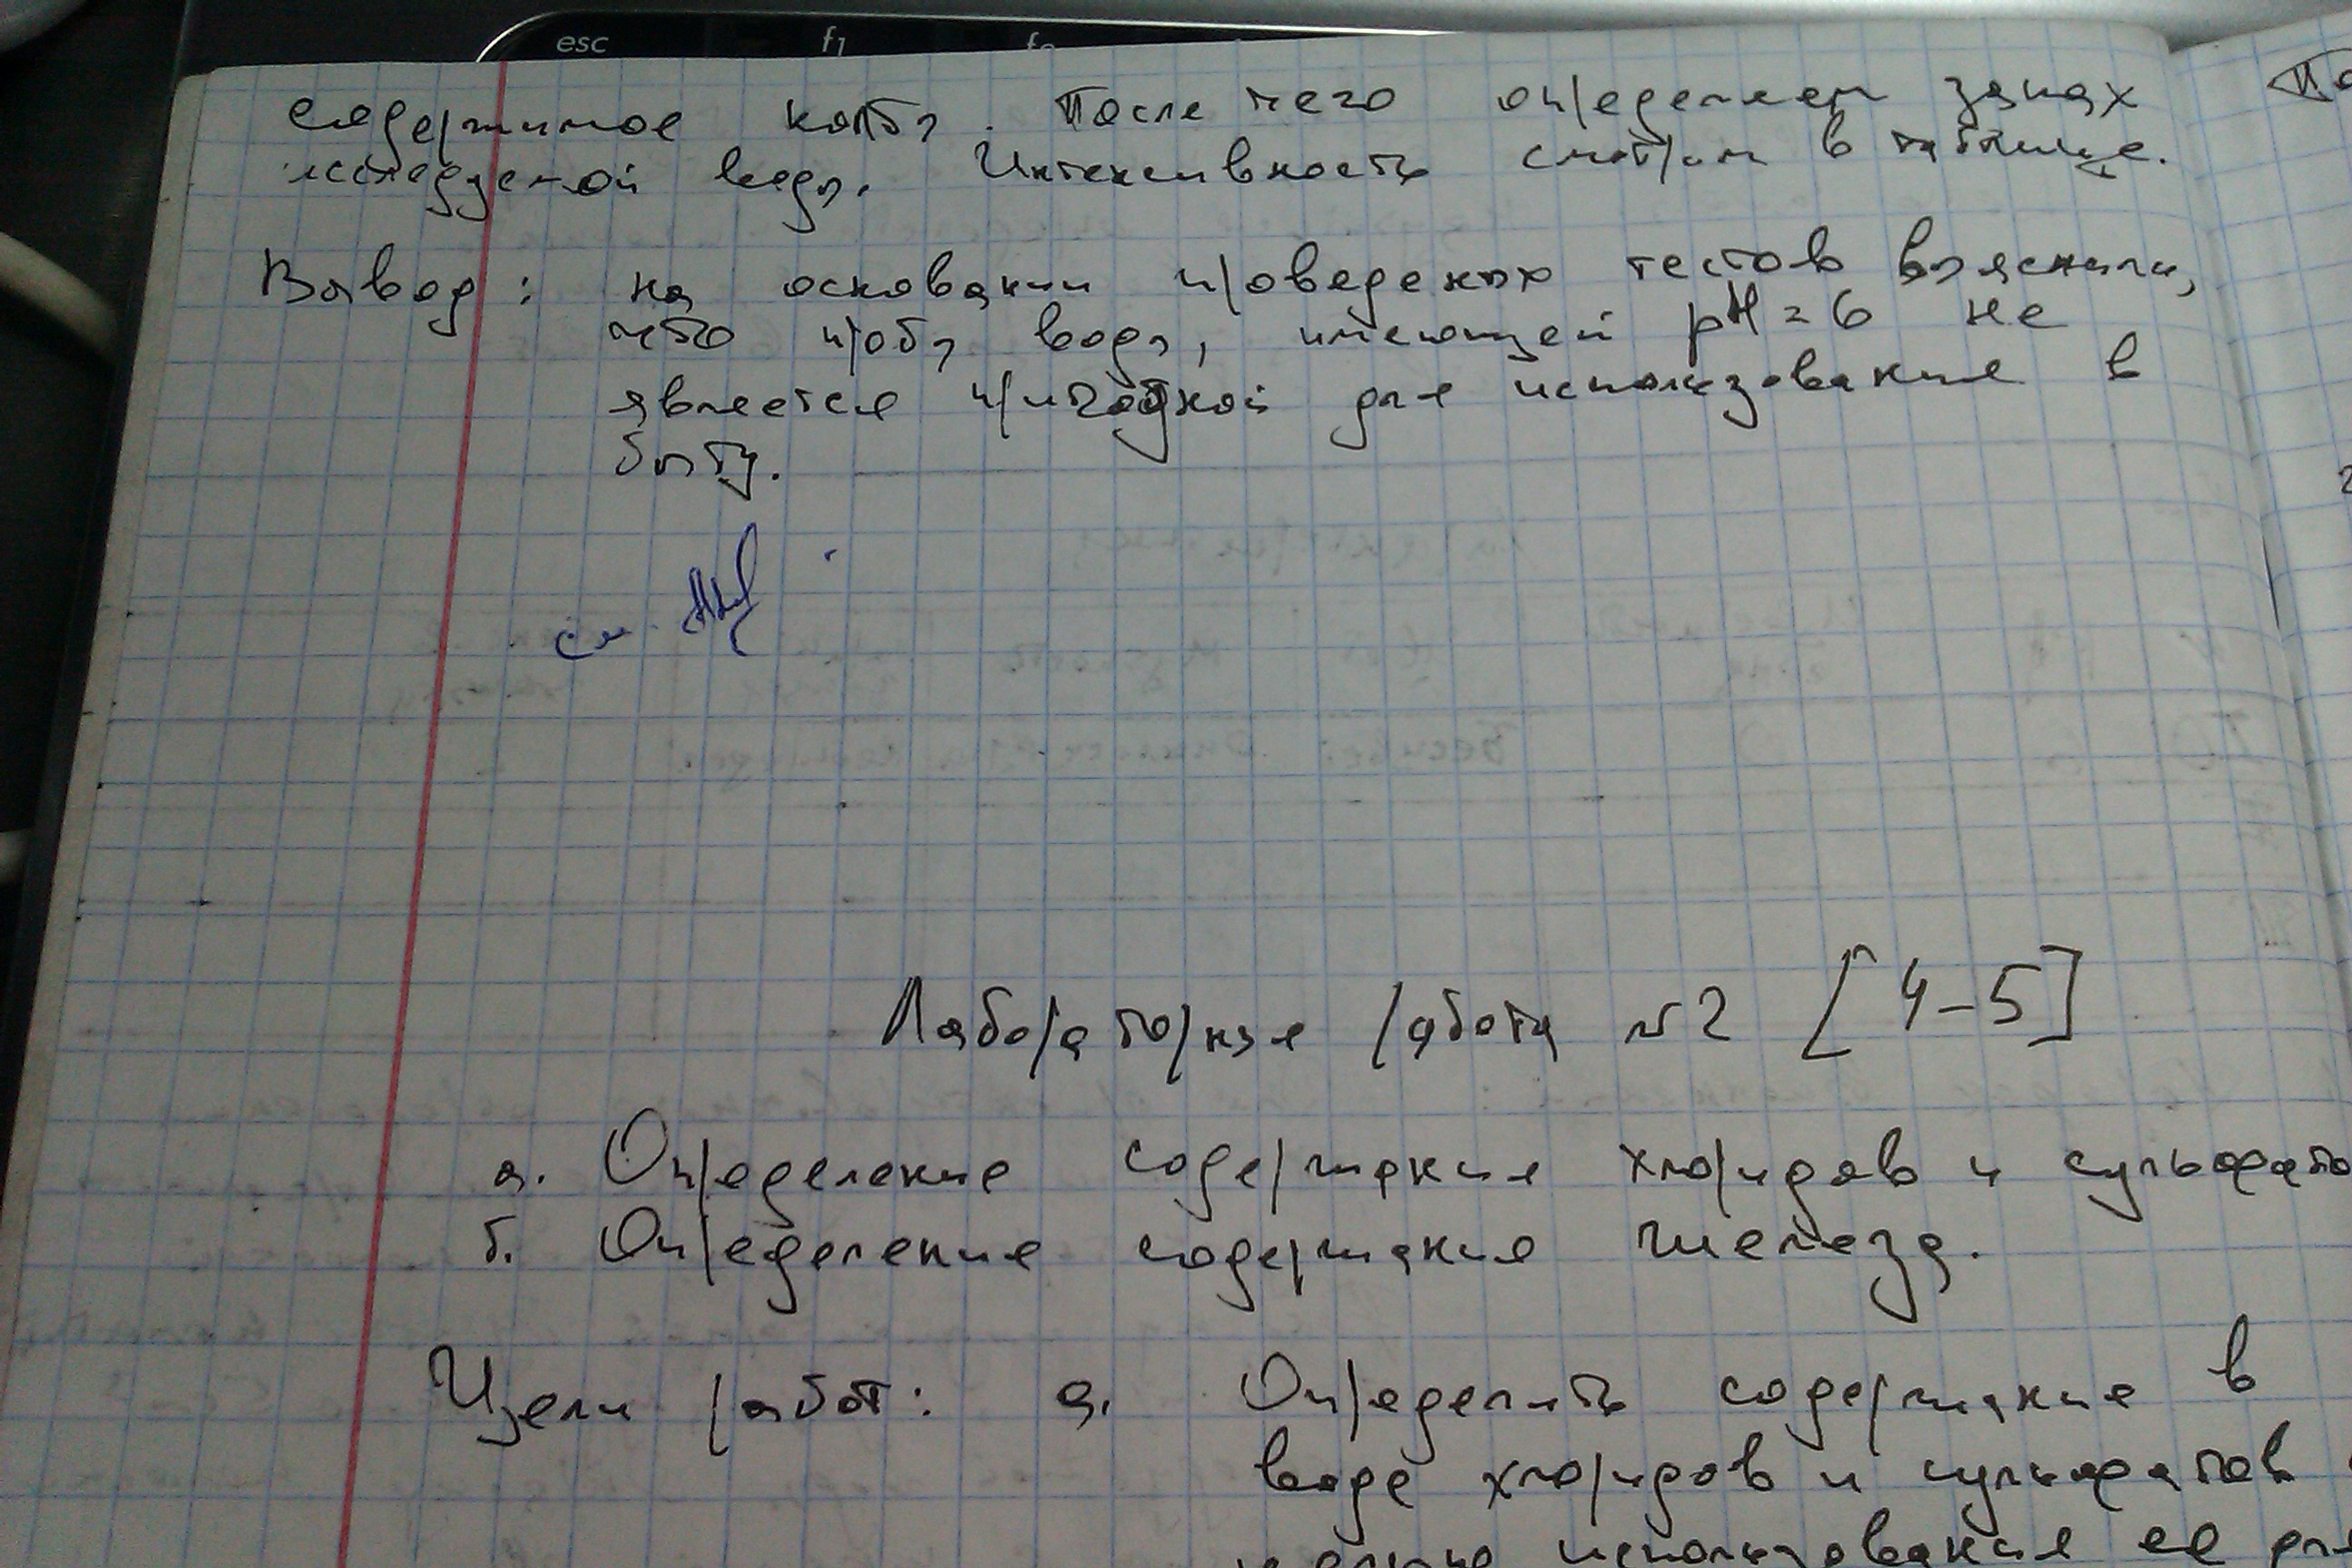 esc f1
содержимое колбы. После чего определяем запах
исследуемой воды. Интенсивность смотрим в таблице.
Вывод: на основании проведеных тестов выяснили,
что пробы воды, имеющей pH = 6 не
является пригодной для использования в
быту.
см.
Лабораторная работа №2 [4-5]
а. Определение содержания хлоридов и сульфато
б. Определение содержания железа.
Цели работ: а. Определить содержание в
воде хлоридов и сульфатов
использования ее